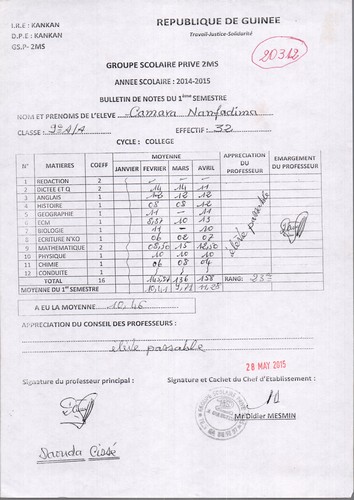 I.R.E : KANKAN
D.P.E : KANKAN
GS.P- 2MS
REPUBLIQUE DE GUINEE
Travail-Justice-Solidarité
20312
GROUPE SCOLAIRE PRIVE 2MS
ANNEE SCOLAIRE : 2014-2015
BULLETIN DE NOTES DU 1ème SEMESTRE
NOM ET PRENOMS DE L'ELEVE Camara Nanfadima
CLASSE : 9eA/A EFFECTIF : 32
CYCLE : COLLEGE
N° MATIERES COEFF MOYENNE APPRECIATION DU PROFESSEUR EMARGEMENT DU PROFESSEUR
JANVIER FEVRIER MARS AVRIL
1 REDACTION 2
2 DICTEE ET Q 2 14 14 11
3 ANGLAIS 1 12 12 12
4 HISTOIRE 1 08 08 12
5 GEOGRAPHIE 1 11 — 11
6 ECM 1 10 13
7 BIOLOGIE 1 11 — 10
8 ECRITURE N'KO 1 06 02 07
9 MATHEMATIQUE 2 15
10 PHYSIQUE 1 10 10 10
11 CHIMIE 1 06 08 04
12 CONDUITE 1
élève passable
TOTAL 16 136 158 RANG:
MOYENNE DU 1er SEMESTRE 11,28
A EU LA MOYENNE 10,46
APPRECIATION DU CONSEIL DES PROFESSEURS :
élève passable
28 MAY 2015
Signature du professeur principal :
Signature et Cachet du Chef d'Etablissement :
Mr Didier MESMIN
Daouda Cissé